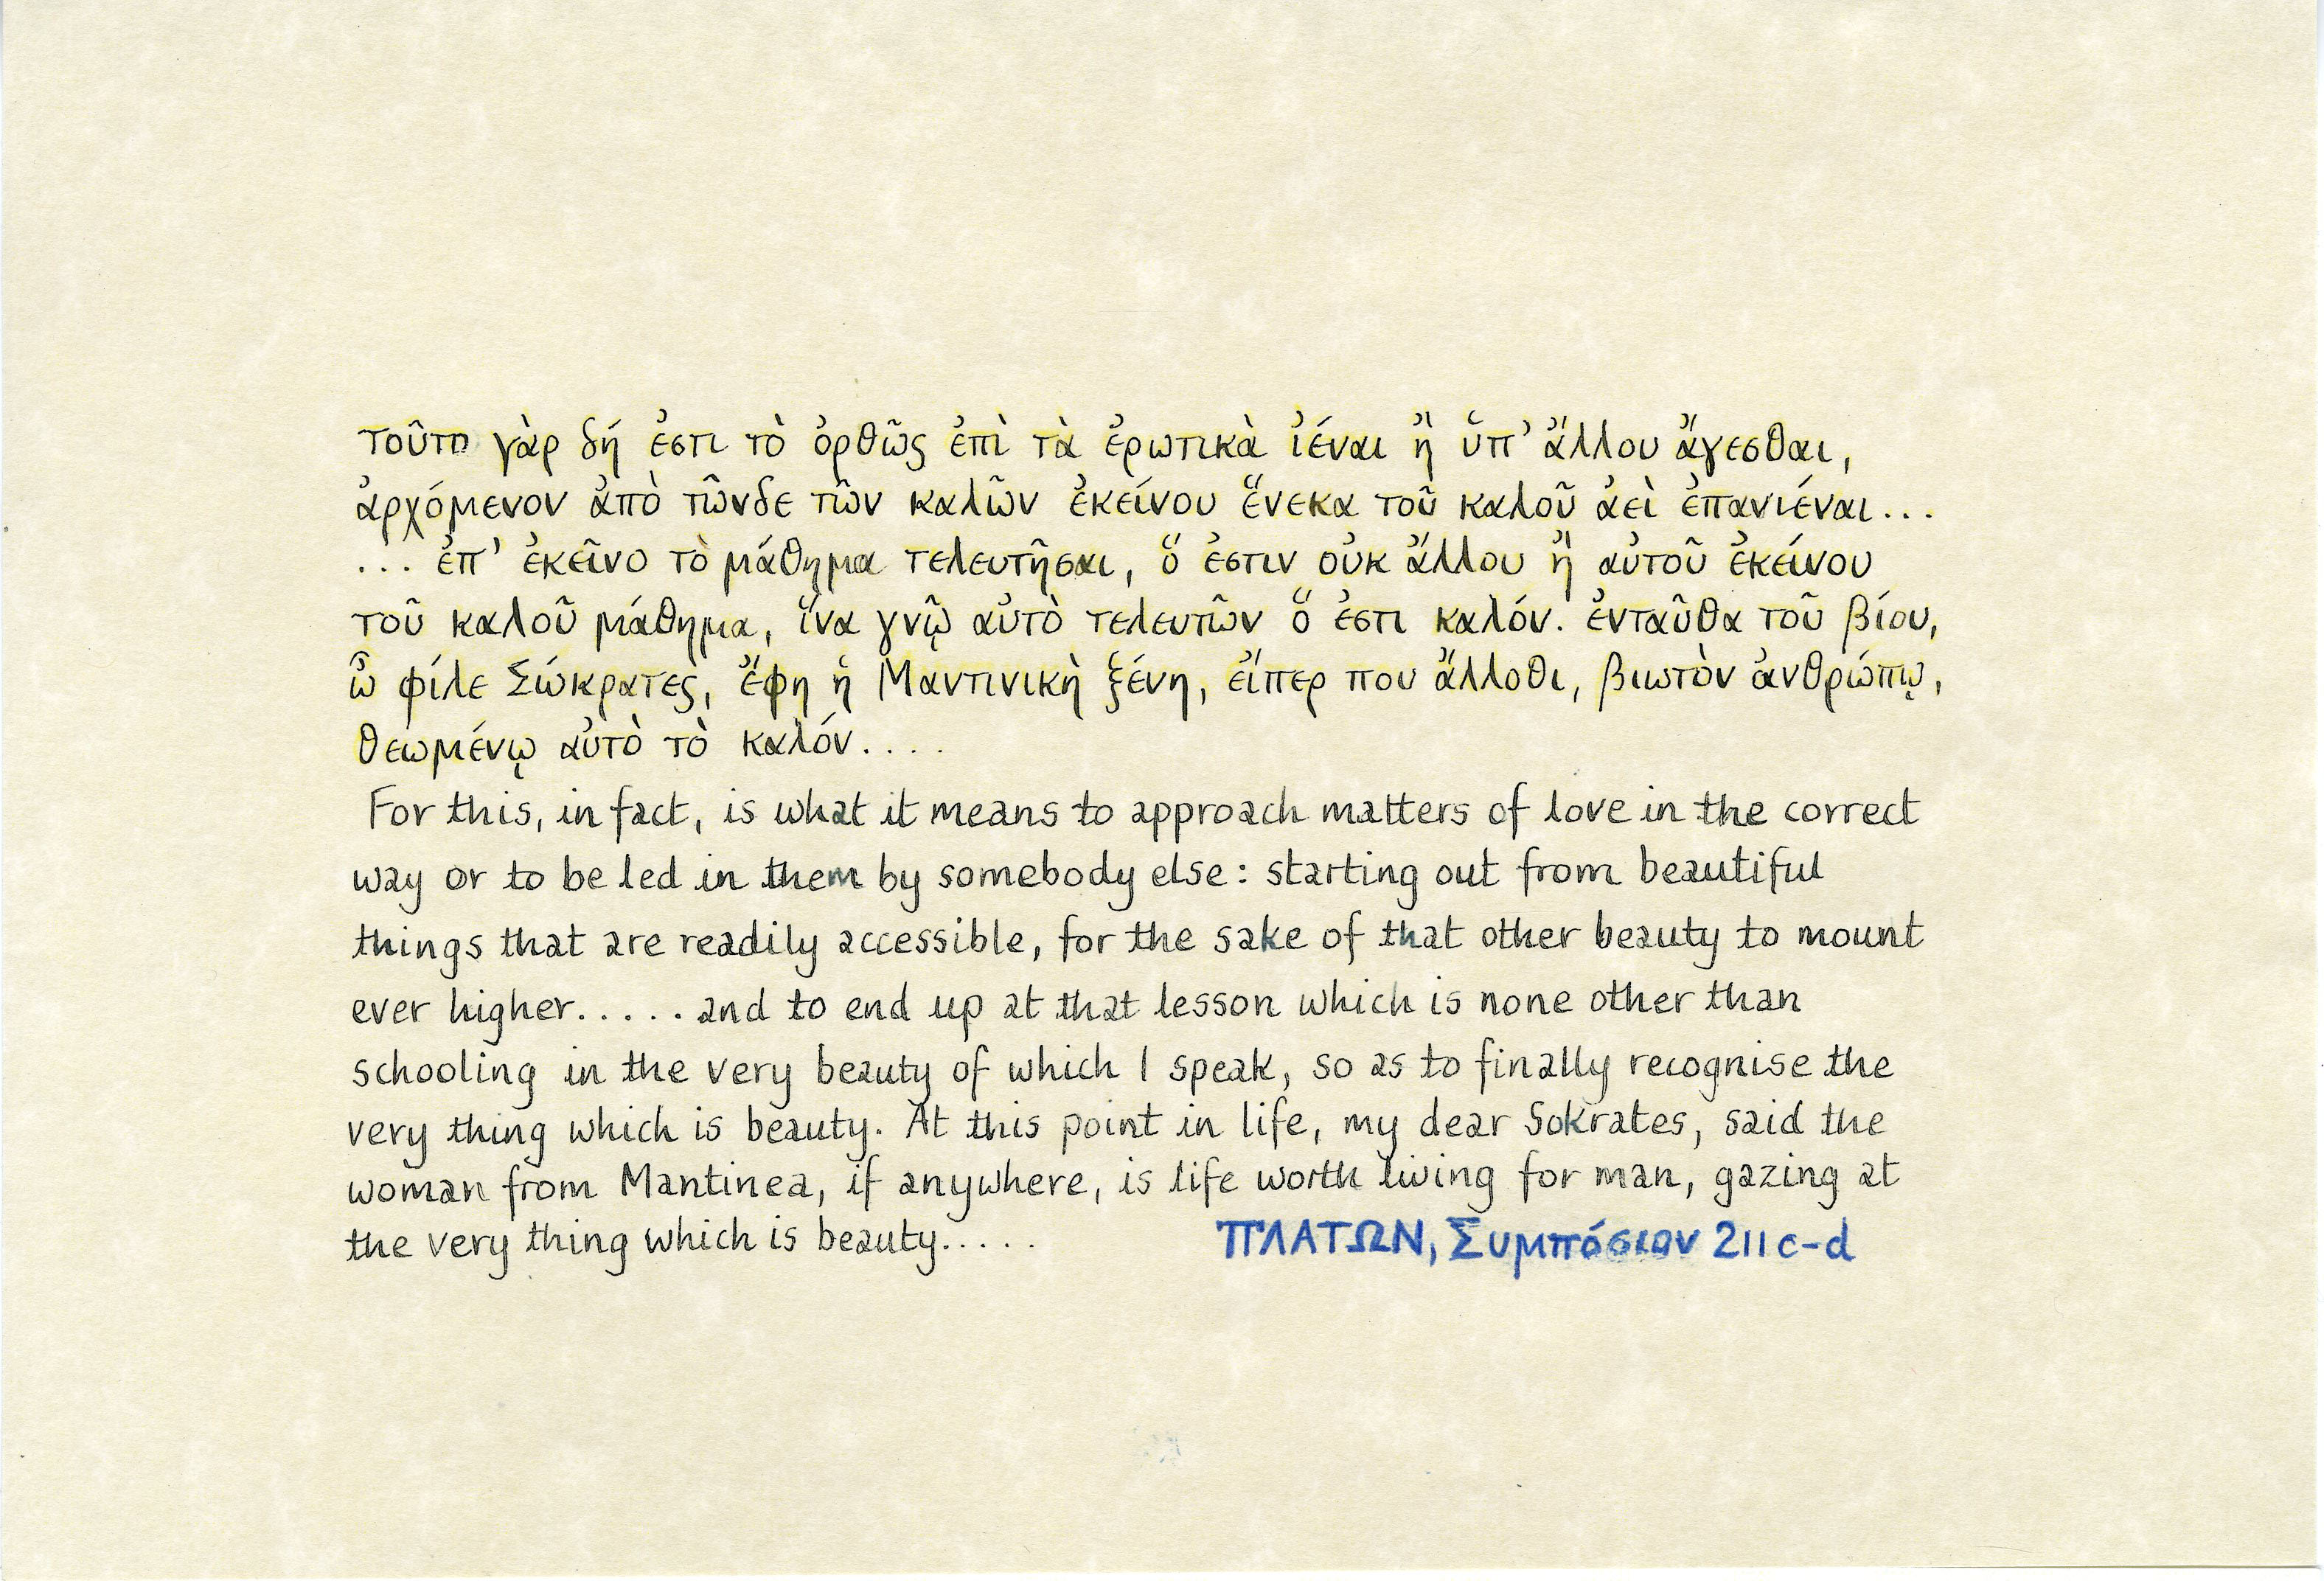 τοῦτο γὰρ δή ἐστι τὸ ὀρθῶς ἐπὶ τὰ ἐρωτικὰ ἰέναι ἢ ὕπ’ ἄλλου ἄγεσθαι,
ἀρχόμενον ἀπὸ τῶνδε τῶν καλῶν ἐκείνου ἕνεκα τοῦ καλοῦ ἀεὶ ἐπανιέναι...
... ἐπ’ ἐκεῖνο τὸ μάθημα τελευτῆσαι, ὅ ἐστιν οὐκ ἄλλου ἢ αὐτοῦ ἐκείνου
τοῦ καλοῦ μάθημα, ἵνα γνῷ αὐτὸ τελευτῶν ὅ ἐστι καλόν. ἐνταῦθα τοῦ βίου,
ὦ φίλε Σώκρατες, ἔφη ἡ Μαντινικὴ ξένη, εἴπερ που ἄλλοθι, βιωτὸν ἀνθρώπῳ,
θεωμένῳ αὐτὸ τὸ καλόν....
For this, in fact, is what it means to approach matters of love in the correct
way or to be led in them by somebody else: starting out from beautiful
things that are readily accessible, for the sake of that other beauty to mount
ever higher..... and to end up at that lesson which is none other than
schooling in the very beauty of which I speak, so as to finally recognise the
very thing which is beauty. At this point in life, my dear Sokrates, said the
woman from Mantinea, if anywhere, is life worth living for man, gazing at
the very thing which is beauty.....
ΠΛΑΤΩΝ, Συμπόσιον 211c-d